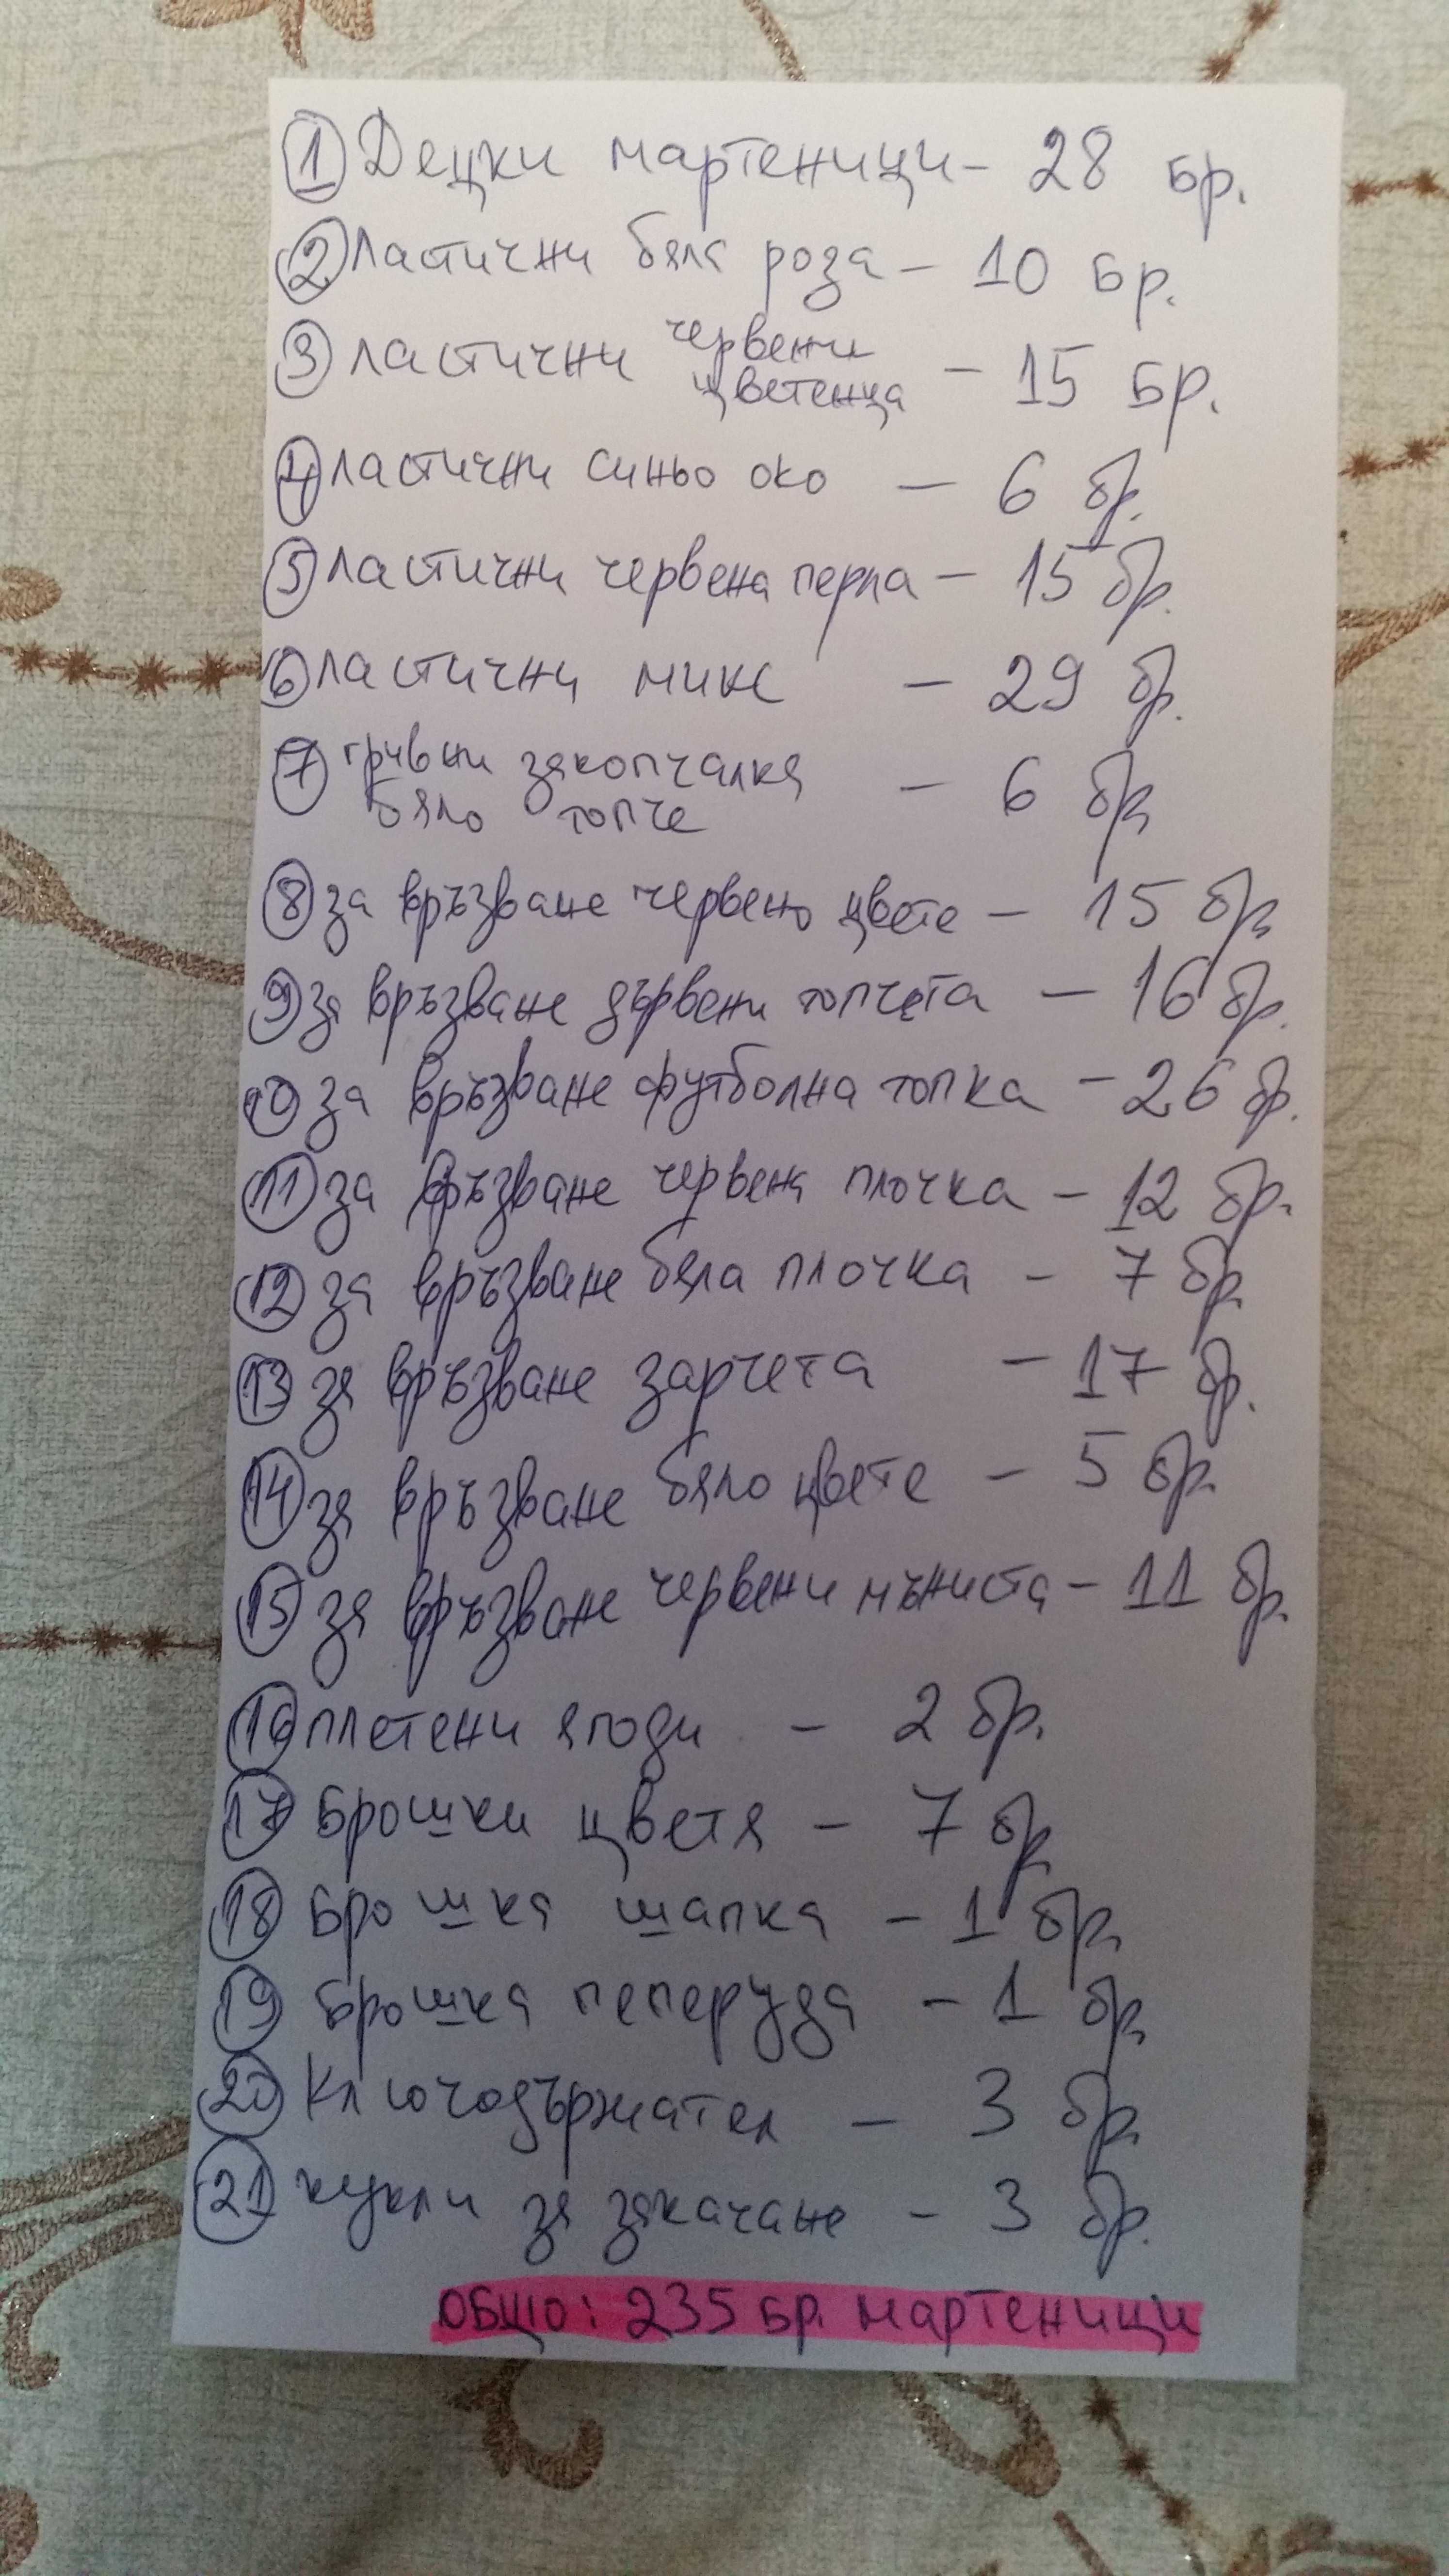 1 Децки мартеници - 28 бр.
2 ластични бяла роза - 10 бр.
3 ластични червени
цветенца - 15 бр.
4 ластични синьо око - 6 бр.
5 ластични червена перла - 15 бр.
6 ластични микс - 29 бр.
7 гривни закопчалка
бяло топче - 6 бр.
8 за връзване червено цвете - 15 бр.
9 за връзване дървени топчета - 16 бр.
10 за връзване футболна топка - 26 бр.
11 за връзване червена плочка - 12 бр.
12 за връзване бяла плочка - 7 бр.
13 за връзване зарчета - 17 бр.
14 за връзване бяло цвете - 5 бр.
15 за връзване червени мъниста - 11 бр.
16 плетени ягоди - 2 бр.
17 Брошки цветя - 7 бр.
18 Брошка шапка - 1 бр.
19 Брошка пеперуда - 1 бр.
20 Ключодържател - 3 бр.
21 кукли за закачане - 3 бр.
ОБЩО: 235 бр. мартеници